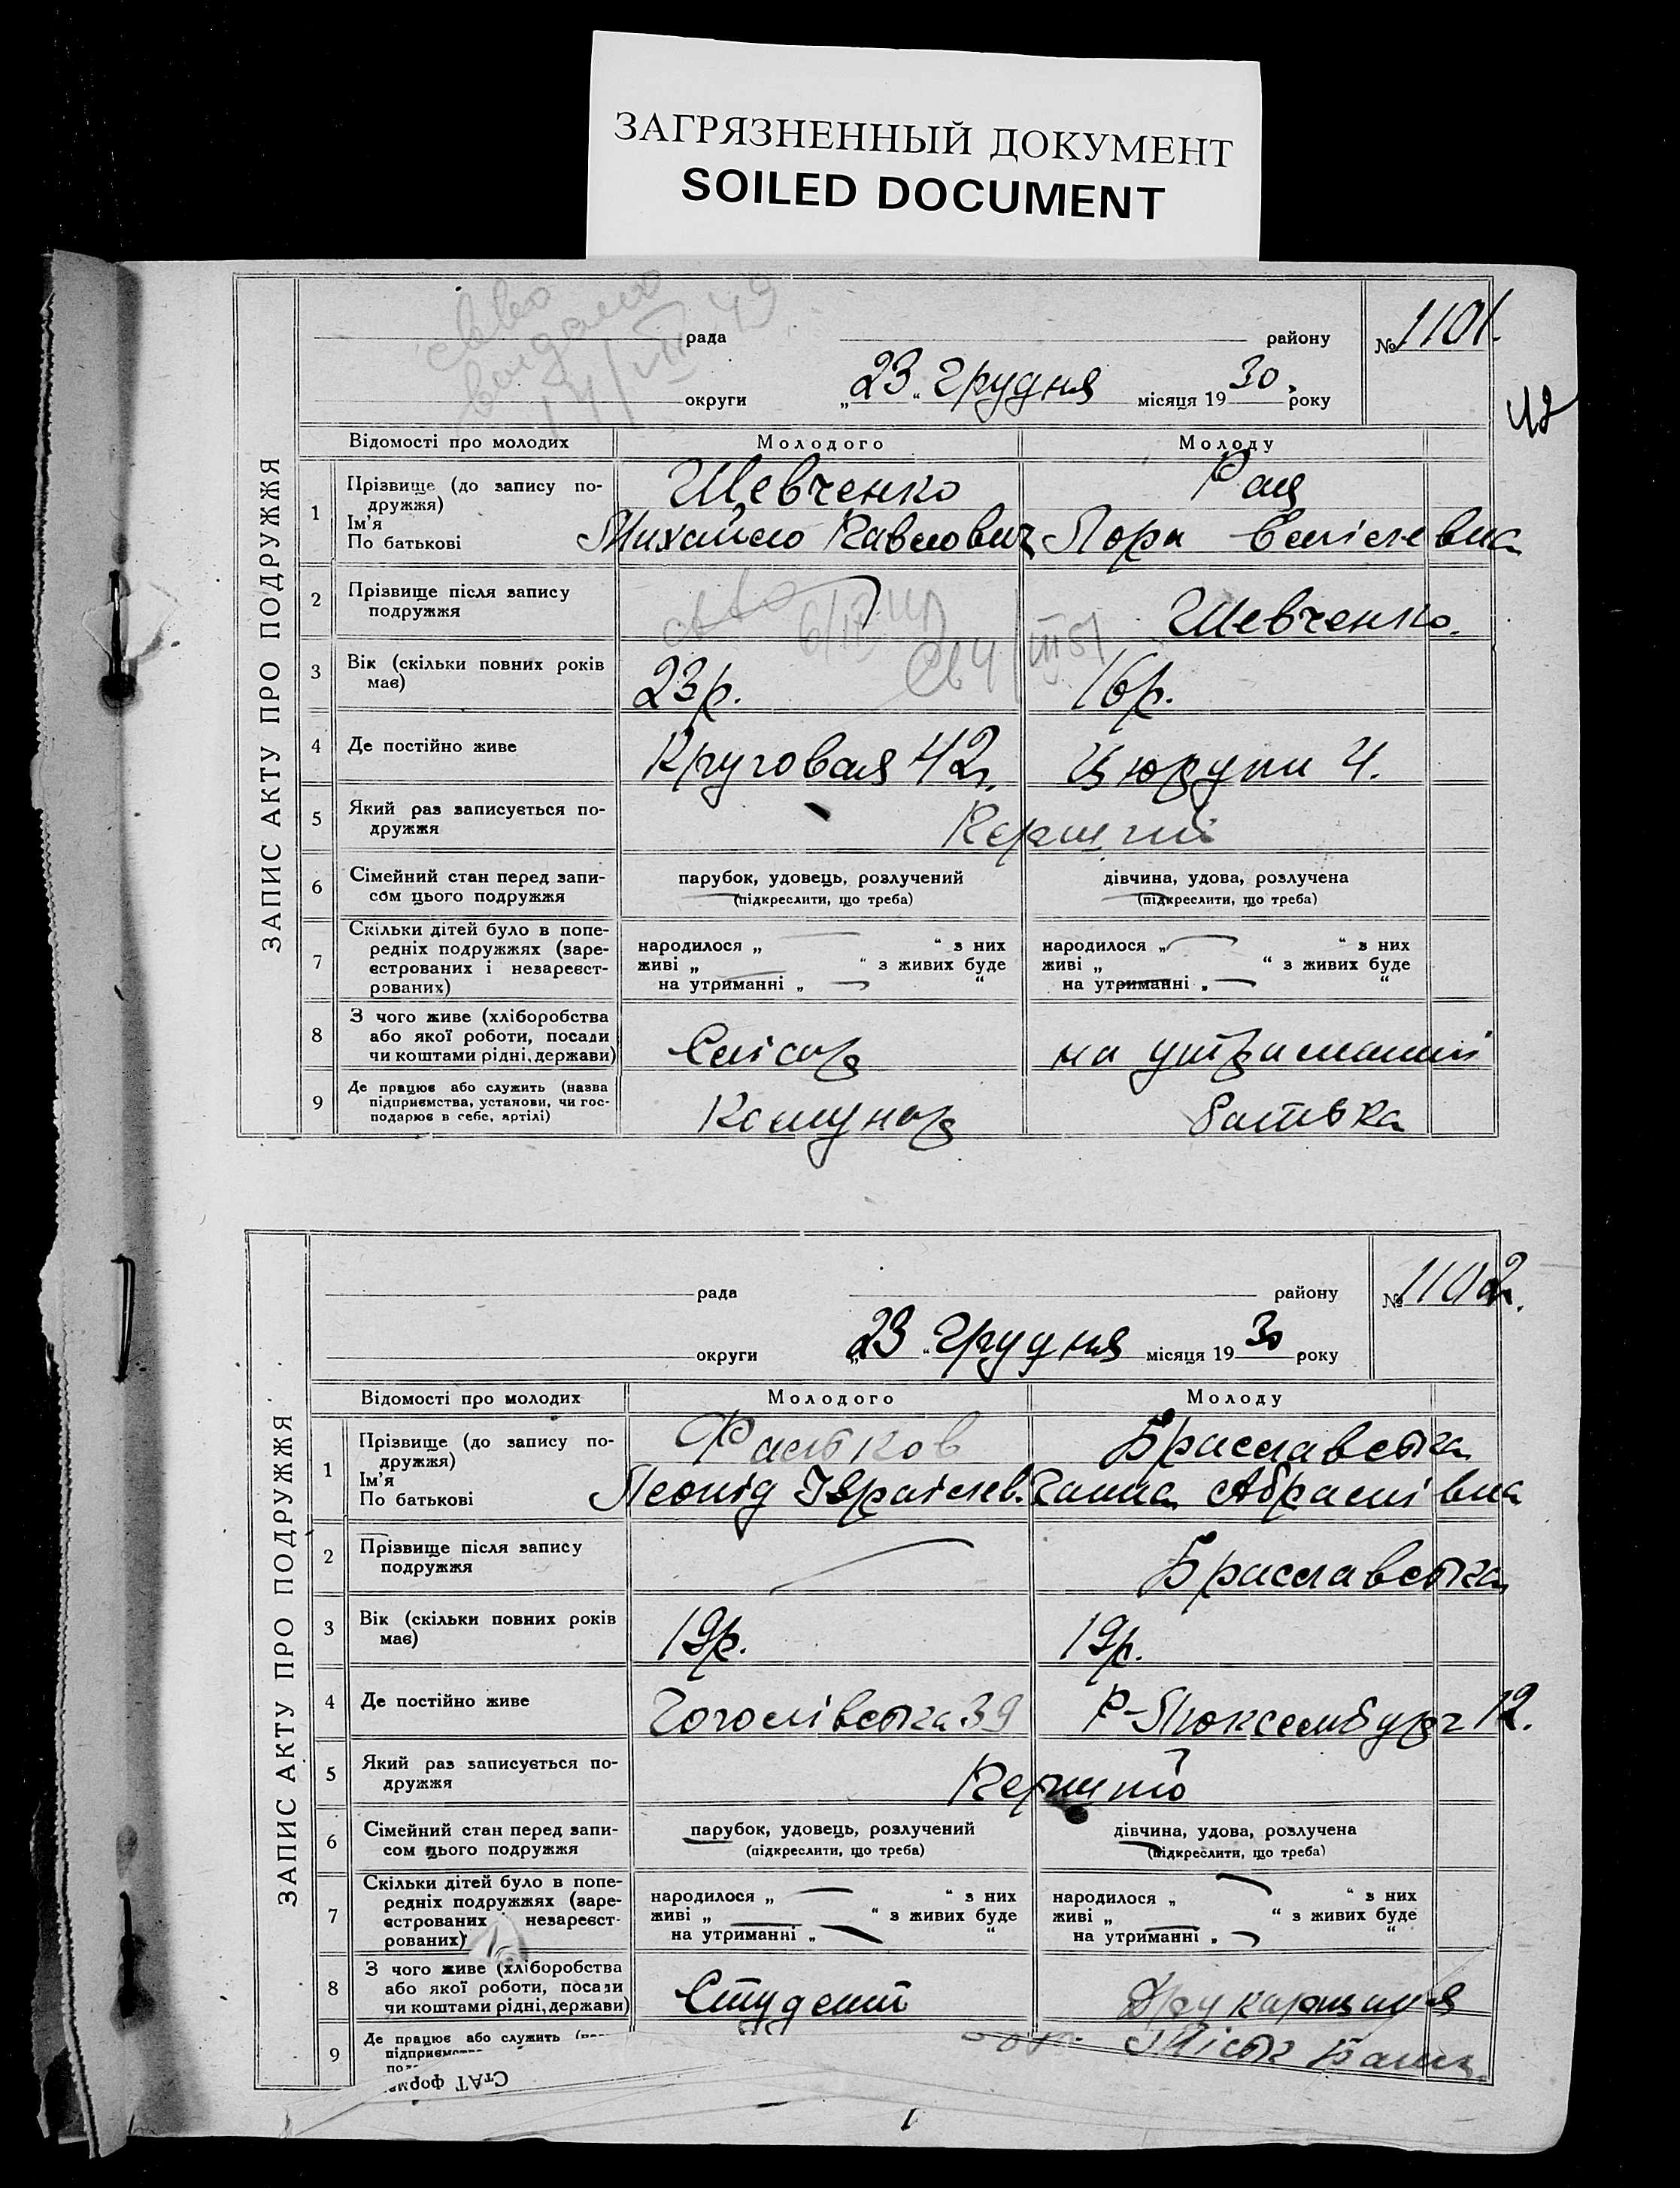 ЗАГРЯЗНЕННЫЙ ДОКУМЕНТ
SOILED DOCUMENT
ЗАПИС АКТУ ПРО ПОДРУЖЖЯ
рада району № 1101.
округи „23“ Грудня місяця 1930. року
42
Відомості про молодих Молодого Молоду
1 Прізвище (до запису по-
дружжя)
Ім'я
По батькові
Шевченко Рац
Михайло Павлович Лора
2 Прізвище після запису
подружжя
Шевченко.
3 Вік (скільки повних років
має)
23р. 16р.
4 Де постійно живе Кругова 42 Цюрупи 4.
5 Який раз записується по-
дружжя
6 Сімейний стан перед запи-
сом цього подружжя
парубок, удовець, розлучений дівчина, удова, розлучена
(підкреслити, що треба) (підкреслити, що треба)
7 Скільки дітей було в попе-
редніх подружжях (заре-
єстрованих і незареєст-
рованих)
народилося „ “ з них народилося „ “ з них
живі „ “ з живих буде живі „ “ з живих буде
на утриманні „ “ на утриманні „ “
8 З чого живе (хліборобства
або якої роботи, посади
чи коштами рідні, держави)
Слюсар на утриманні
9 Де працює або служить (назва
підприємства, установи, чи гос-
подарює в себе, артілі)
Комунар батька
ЗАПИС АКТУ ПРО ПОДРУЖЖЯ
рада району № 1102.
округи „23“ Грудня місяця 1930 року
Відомості про молодих Молодого Молоду
1 Прізвище (до запису по-
дружжя)
Ім'я
По батькові
Фальков Браславська
Леонід Ізраілев. Ганна Абрамівна
2 Прізвище після запису
подружжя
Браславська
3 Вік (скільки повних років
має)
19р. 19р.
4 Де постійно живе Гоголівська 39 Р-Люксембург 12.
5 Який раз записується по-
дружжя
6 Сімейний стан перед запи-
сом цього подружжя
парубок, удовець, розлучений дівчина, удова, розлучена
(підкреслити, що треба) (підкреслити, що треба)
7 Скільки дітей було в попе-
редніх подружжях (заре-
єстрованих незареєст-
рованих)
народилося „ “ з них народилося „ “ з них
живі „ “ з живих буде живі „ “ з живих буде
на утриманні „ “ на утриманні „ “
8 З чого живе (хліборобства
або якої роботи, посади
чи коштами рідні, держави)
Студент Друкарниця
9 Де працює або служить
СтАТ форма
1